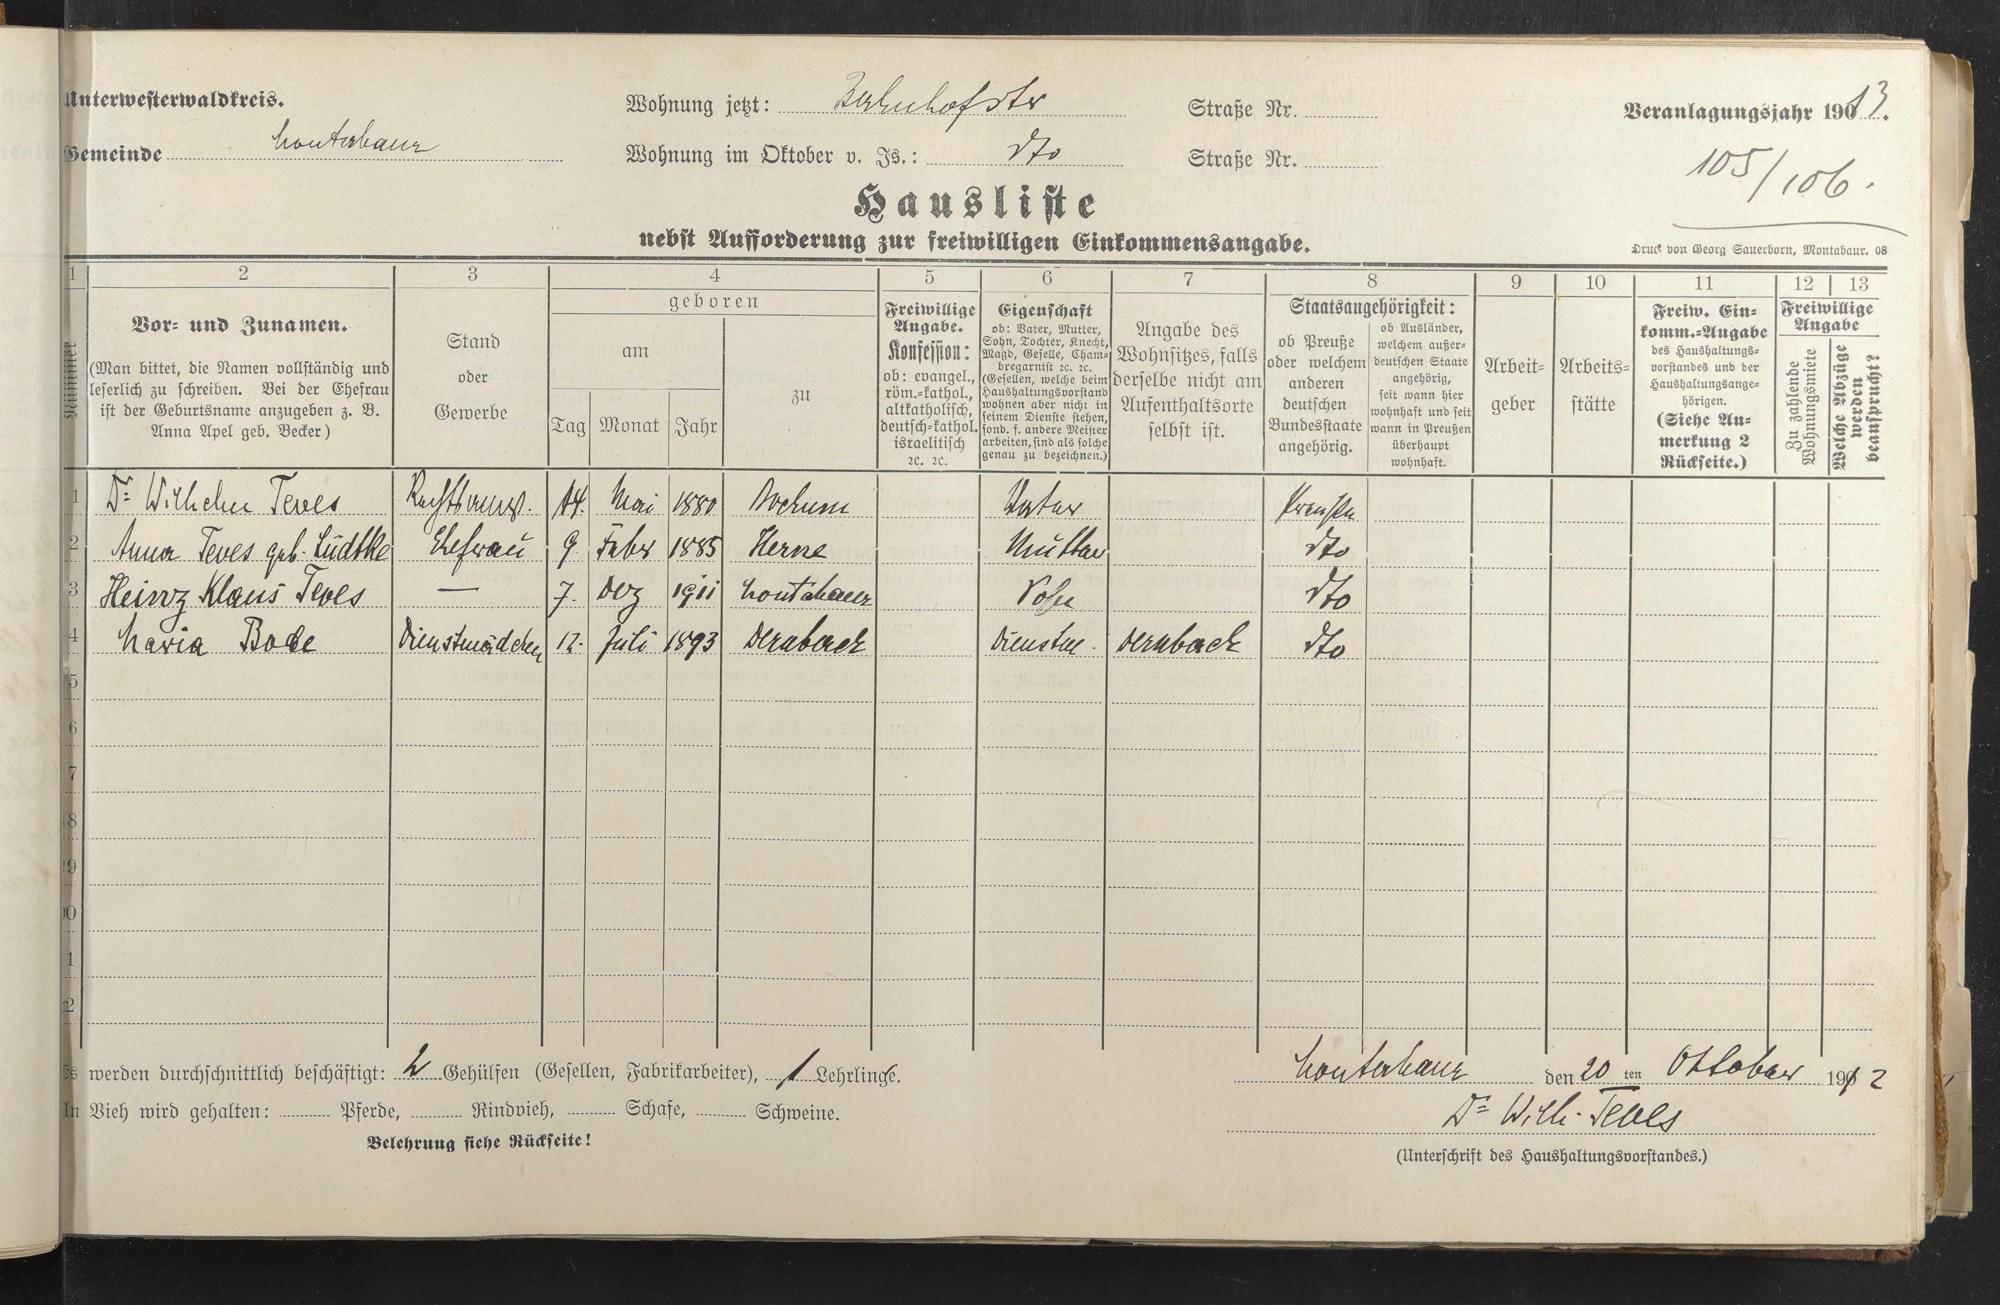 Unterwesterwaldkreis.
Gemeinde Montabaur
Wohnung jetzt: Bahnhofstr Straße Nr.
Wohnung im Oktober v. Js.: dto Straße Nr.
Veranlagungsjahr 1913.
105/106.
Hausliste
nebst Aufforderung zur freiwilligen Einkommensangabe.
Druck von Georg Sauerborn, Montabaur. 08
1 2 3 4 5 6 7 8 9 10 11 12 13
Nummer
Vor- und Zunamen.
(Man bittet, die Namen vollständig und
leserlich zu schreiben. Bei der Ehefrau
ist der Geburtsname anzugeben z. B.
Anna Apel geb. Becker.)
Stand
oder
Gewerbe
geboren
am
Tag Monat Jahr
zu
Freiwillige
Angabe.
Konfession:
ob: evangel.,
röm.-kathol.,
altkatholisch,
deutsch-kathol.
israelitisch
ꝛc. ꝛc.
Eigenschaft
ob: Vater, Mutter,
Sohn, Tochter, Knecht,
Magd, Geselle, Cham-
bregarnist ꝛc. ꝛc.
(Gesellen, welche beim
Haushaltungsvorstand
wohnen aber nicht in
seinem Dienste stehen,
sond. f. andere Meister
arbeiten, sind als solche
genau zu bezeichnen.)
Angabe des
Wohnsitzes, falls
derselbe nicht am
Aufenthaltsorte
selbst ist.
Staatsangehörigkeit:
ob Preuße
oder welchem
anderen
deutschen
Bundesstaate
angehörig.
ob Ausländer,
welchem außer-
deutschen Staate
angehörig,
seit wann hier
wohnhaft und seit
wann in Preußen
überhaupt
wohnhaft.
Arbeit-
geber
Arbeits-
stätte
Freiw. Ein-
komm.-Angabe
des Haushaltungs-
vorstandes und der
Haushaltungsange-
hörigen.
(Siehe An-
merkung 2
Rückseite.)
Freiwillige
Angabe
Zu zahlende
Wohnungsmiete
Welche Abzüge
werden
beansprucht?
1 Dr Wilhelm Teves Rechtsanw. 14. Mai 1880 Bochum Vater Preuße
2 Anna Teves geb. Lüdtke Ehefrau 9. Febr 1885 Herne Mutter dto
3 Heinz Klaus Teves — 7. Dez 1911 Montabaur Sohn dto
4 Maria Bode Dienstmädchen 12. Juli 1893 Dernbach Dienstm. Dernbach dto
5
6
7
8
9
10
11
12
Es werden durchschnittlich beschäftigt: 2 Gehülfen (Gesellen, Fabrikarbeiter), 1 Lehrlinge.
An Vieh wird gehalten: Pferde, Rindvieh, Schafe, Schweine.
Belehrung siehe Rückseite!
Montabaur den 20 ten Oktober 1912
Dr Wilh. Teves
(Unterschrift des Haushaltungsvorstandes.)